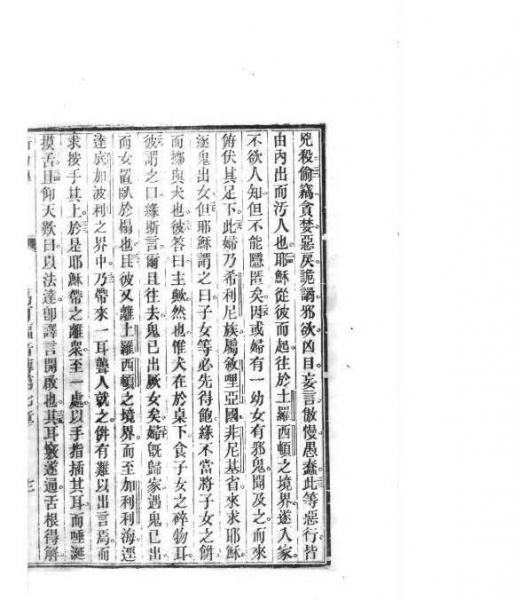 兇殺偷竊貪婪惡戾詭譎邪欲凶目妄言傲慢愚蠢此等惡行皆
由內出而汚人也耶穌從彼而起往於土羅西頓之境界遂入家
不欲人知但不能隱匿矣因或婦有一幼女有邪鬼聞及之而來
俯伏其足下此婦乃希利尼族屬敘哩亞國非尼基省來求耶穌
逐鬼出女但耶穌謂之曰子女等必先得飽緣不當將子女之餅
而擲與犬也彼答曰主歟然也惟犬在於桌下食子女之碎物耳
彼謂之曰緣斯言爾且往去鬼已出厥女矣婦旣歸家遇鬼已出
而女置臥於榻也且彼又離土羅西頓之境界而至加利利海逕
達底加波利之界中乃帶來一耳聾人就之倂有難以出言焉而
求按手其上於是耶穌帶之離衆至一處以手指插其耳而唾涎
摸舌且仰天歎曰以法達卽譯言開啟也其耳竅遂通舌根得解
福音傳第七章 三